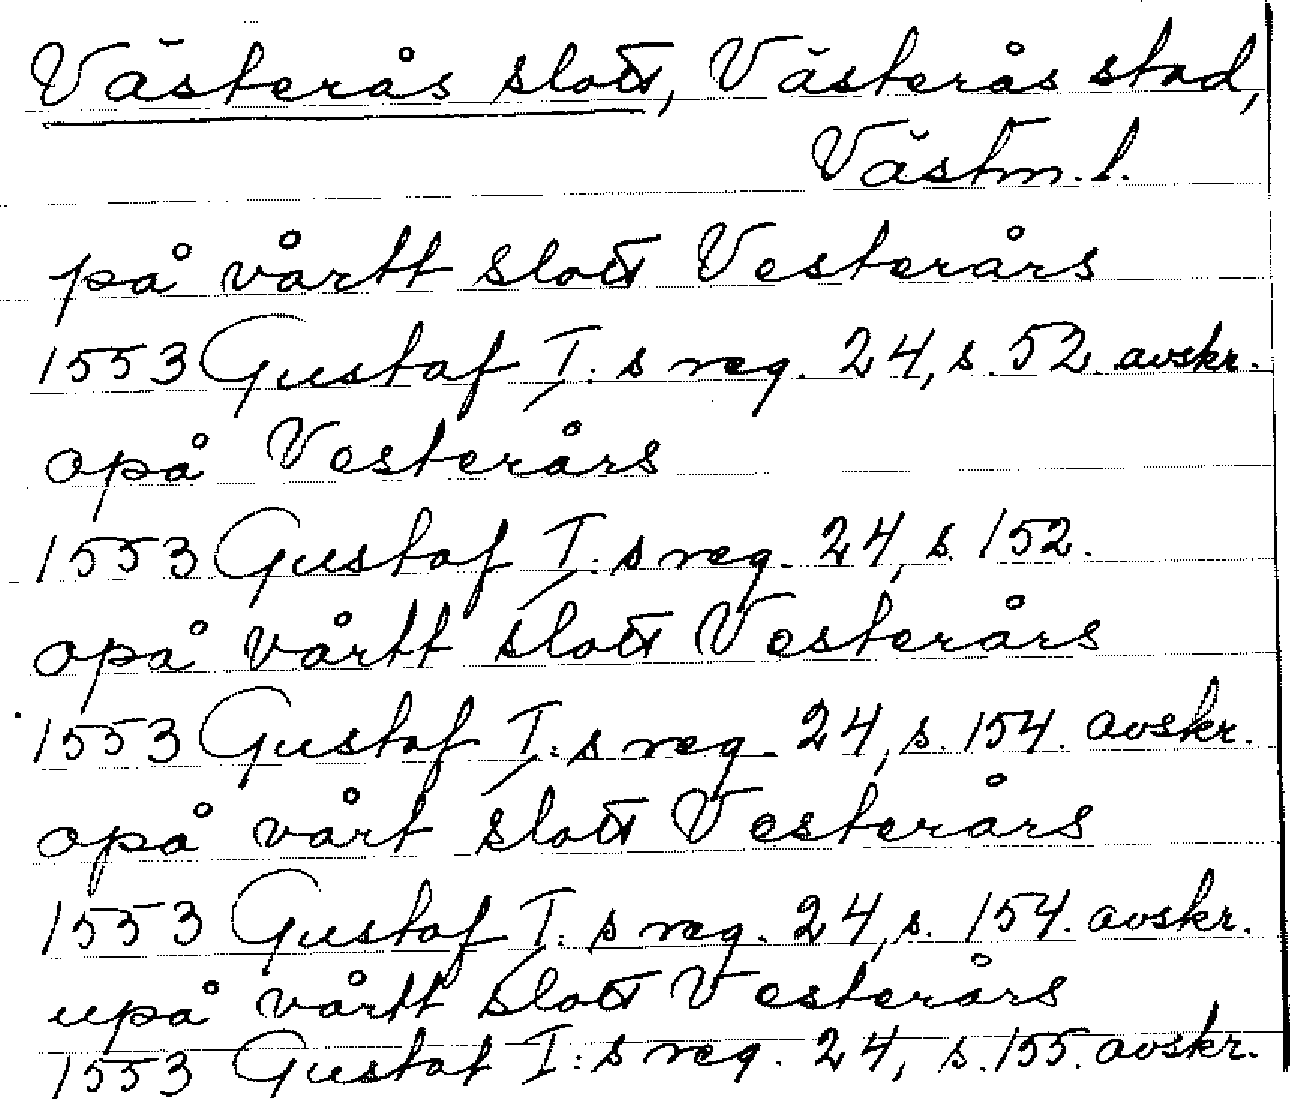 Västerås slott, Västerås stad,
Västm. l.
på vårtt slott Vesterårs
1553 Gustaf I:s reg. 24, s. 52. avskr.
opå Vesterårs
1553 Gustaf I:s reg. 24, s. 152.
opå vårtt slott Vesterårs
1553 Gustaf I:s reg. 24, s. 154. avskr.
opå vårt slott Vesterårs
1553 Gustaf I:s reg. 24, s. 154. avskr.
upå vårtt slott Vesterårs
1553 Gustaf I:s reg. 24, s. 155. avskr.